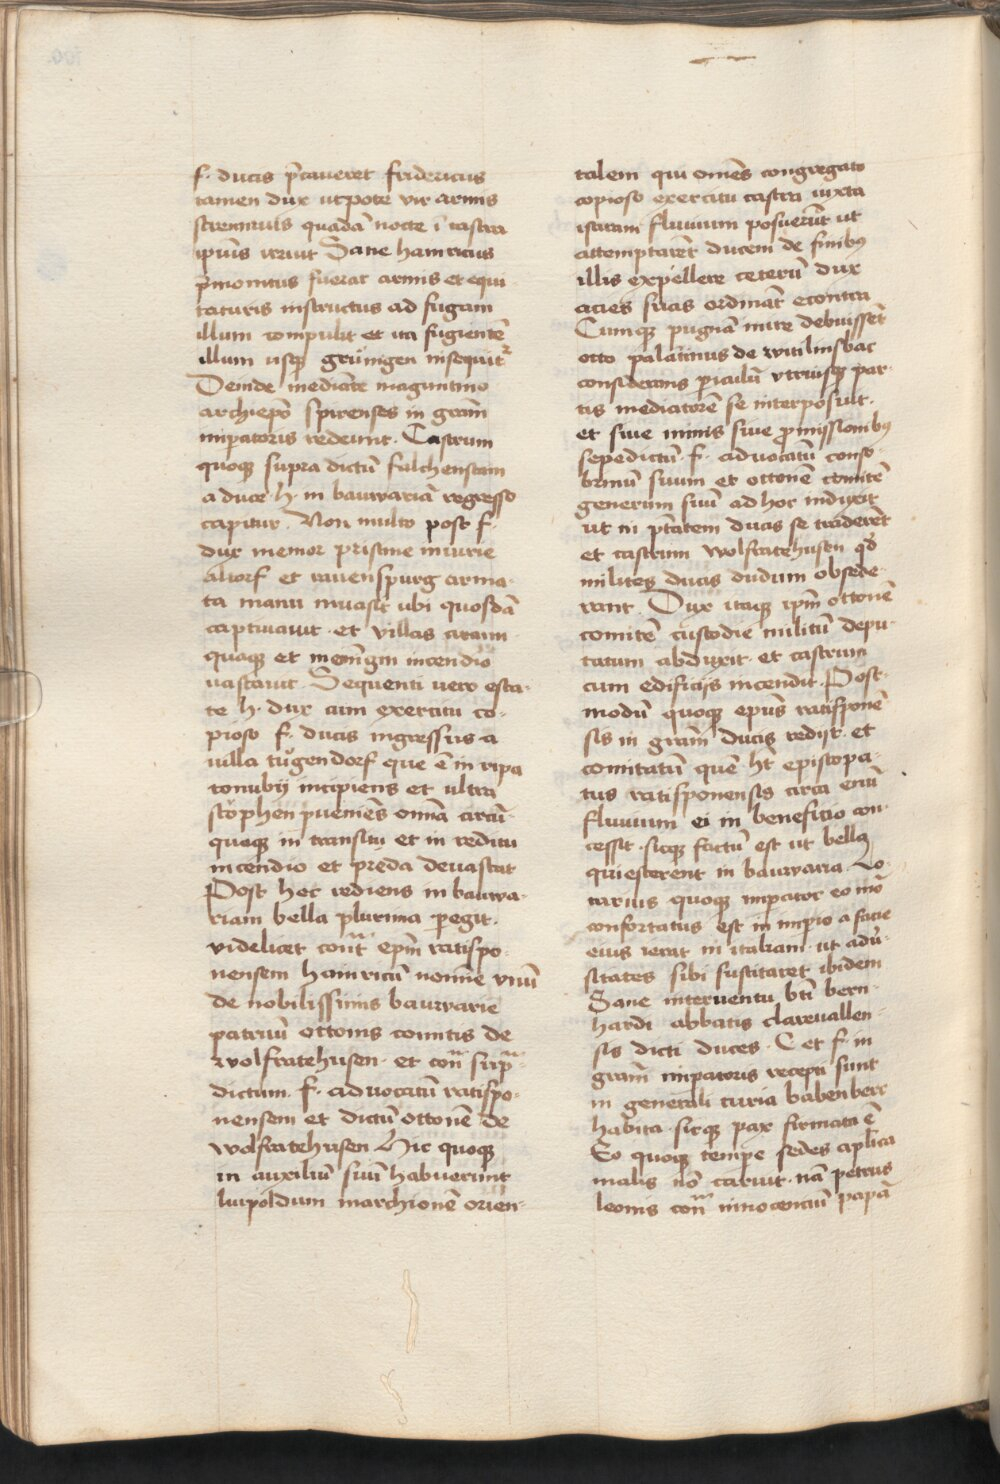 f. ducis p̄caveret fridericus
tamen dux utpote vir armis
strennuus quadā nocte ī castra
ipius irruit Sane hainricus
p̄monitus fuerat armis et equi
taturis instructus ad fugam
illum compulit et ita fugientē
illum usq̄ grüningen insequit᷑
Deinde mediāte maguntino
archiep̄o spirenses in grām
imp̄atoris redeunt. Castrum
quoq̄ supra dictū falchenstain
a duce .h. in bauwariā regresso
capitur. Non multo post f.
dux memor pristine iniurie
altorf et ravenspurg arma-
ta manu invasit ubi quosdā
captivavit. et villas circum
quaq̄ et memīgin incendio
vastavit. Sequenti vero esta-
te h. dux cum exercitu co-
pioso f. ducis ingressus a
villa tůgendorf que ē in ripa
conubij incipiens et ultra
stophen pueniēs omīa circū-
quaq̄ in transitu et in reditu
incendio et preda devastat
Post hec rediens in bauwa-
riam bella plurima p̱egit.
videlicet cont͛ ep̄m ratispo-
nensem hainricū nomīe virū
de nobilissimis bauwarie
patruū ottonis comitis de
wolfratehusen. et con͛ sup͛
dictum .f. advocatū ratispo-
nensem et dictū ottonē de
wolfratehusen Hic quoq̄
in auxiliū suū habuerunt
luipoldum marchionē orien-
talem qui om̄es congregato
copioso exercitu castra iuxta
isaram fluvium posuerūt ut
attemptarēt ducem de finibꝫ
illis expellere ceterū dux
acies suas ordināt econtra
Cumq̄ pugnā inire debuissēt
otto palatinus de witilinsbac
considerans p̱iculū utriusq̄ par-
tis mediatorē se interposuit.
et sive minis sive p̱missionibꝫ
sepedictū .f. advocatū conso-
brinū suum et ottonē comitē
generum suū ad hoc induxit
ut in p̄tatem ducis se traderēt
et castrum wolfratehusen qd̄
milites ducis dudum obsede-
rant. Dux itaq̄ ip̄m ottonē
comitē custodie militū depu-
tatum abduxit. et castrum
cum edificijs incendit. Post-
modū quoq̄ ep̄us ratisponē
sis in grām ducis redijt. et
comitatū quē ht̄ episcopa-
tus ratisponensis circa enū
fluvium ei in beneficio con-
cessit. sicq̄ factū est ut bella
quiescerent in bauwaria. Lo-
tarius quoq̄ imp̱ator eo mō
confortatus est in imp̱io a facie
eius ierat in italiam. ut adu͛-
sitates sibi suscitaret ibidem
Sane interventu bti̅ bern-
hardi abbatis clarevallen-
sis dicti duces. C et f. in
grām imp̱atoris recepti sunt
in generali curia babenberc
habita. sicq̄ pax firmata ē
Eo quoq̄ tempe sedes aplica
malis nō caruit. nā petrus
leonis con͛ innocentiū papā